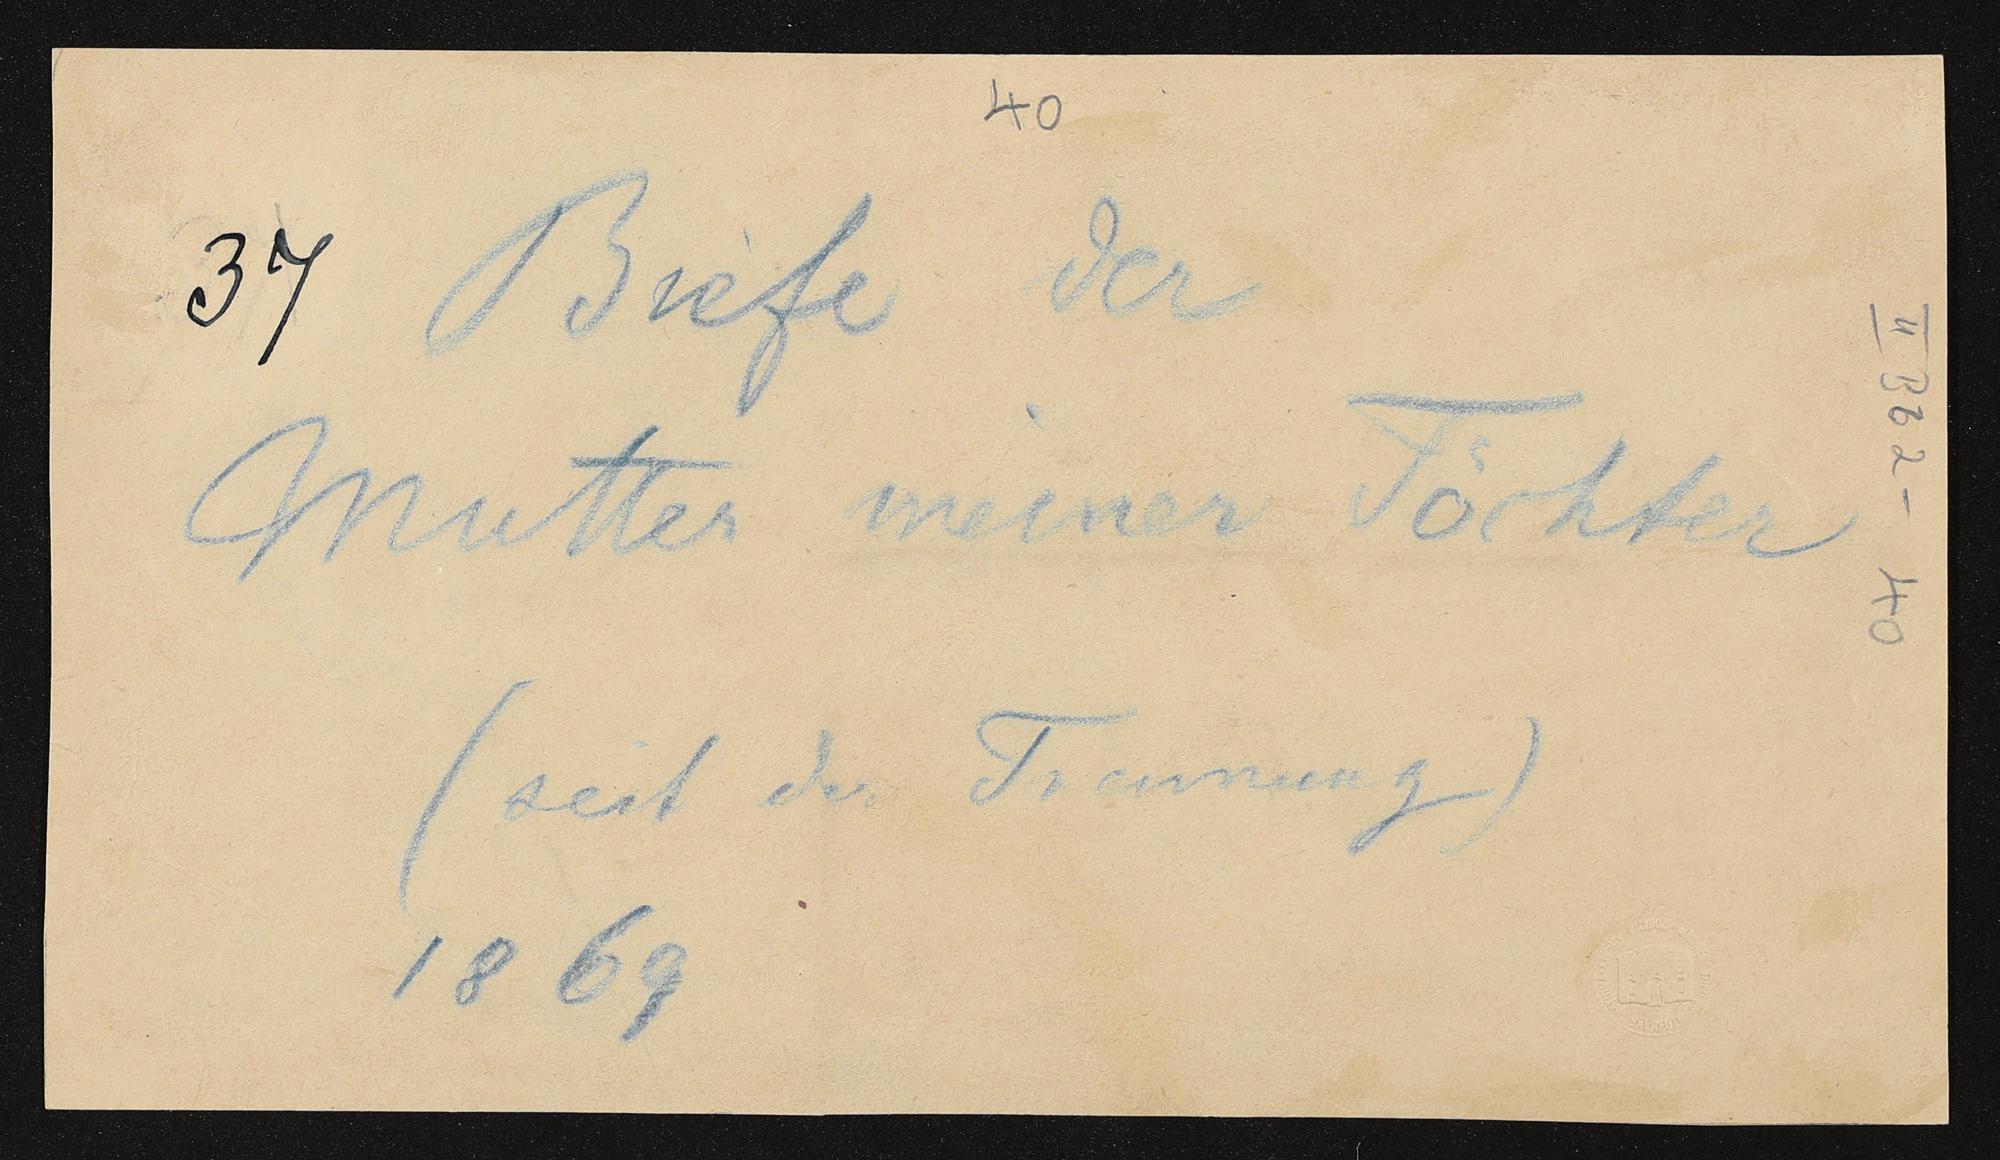 40
37 Briefe der
Mutter meiner Töchter
(seit der Trennung)
1869
II B b 2 - 40